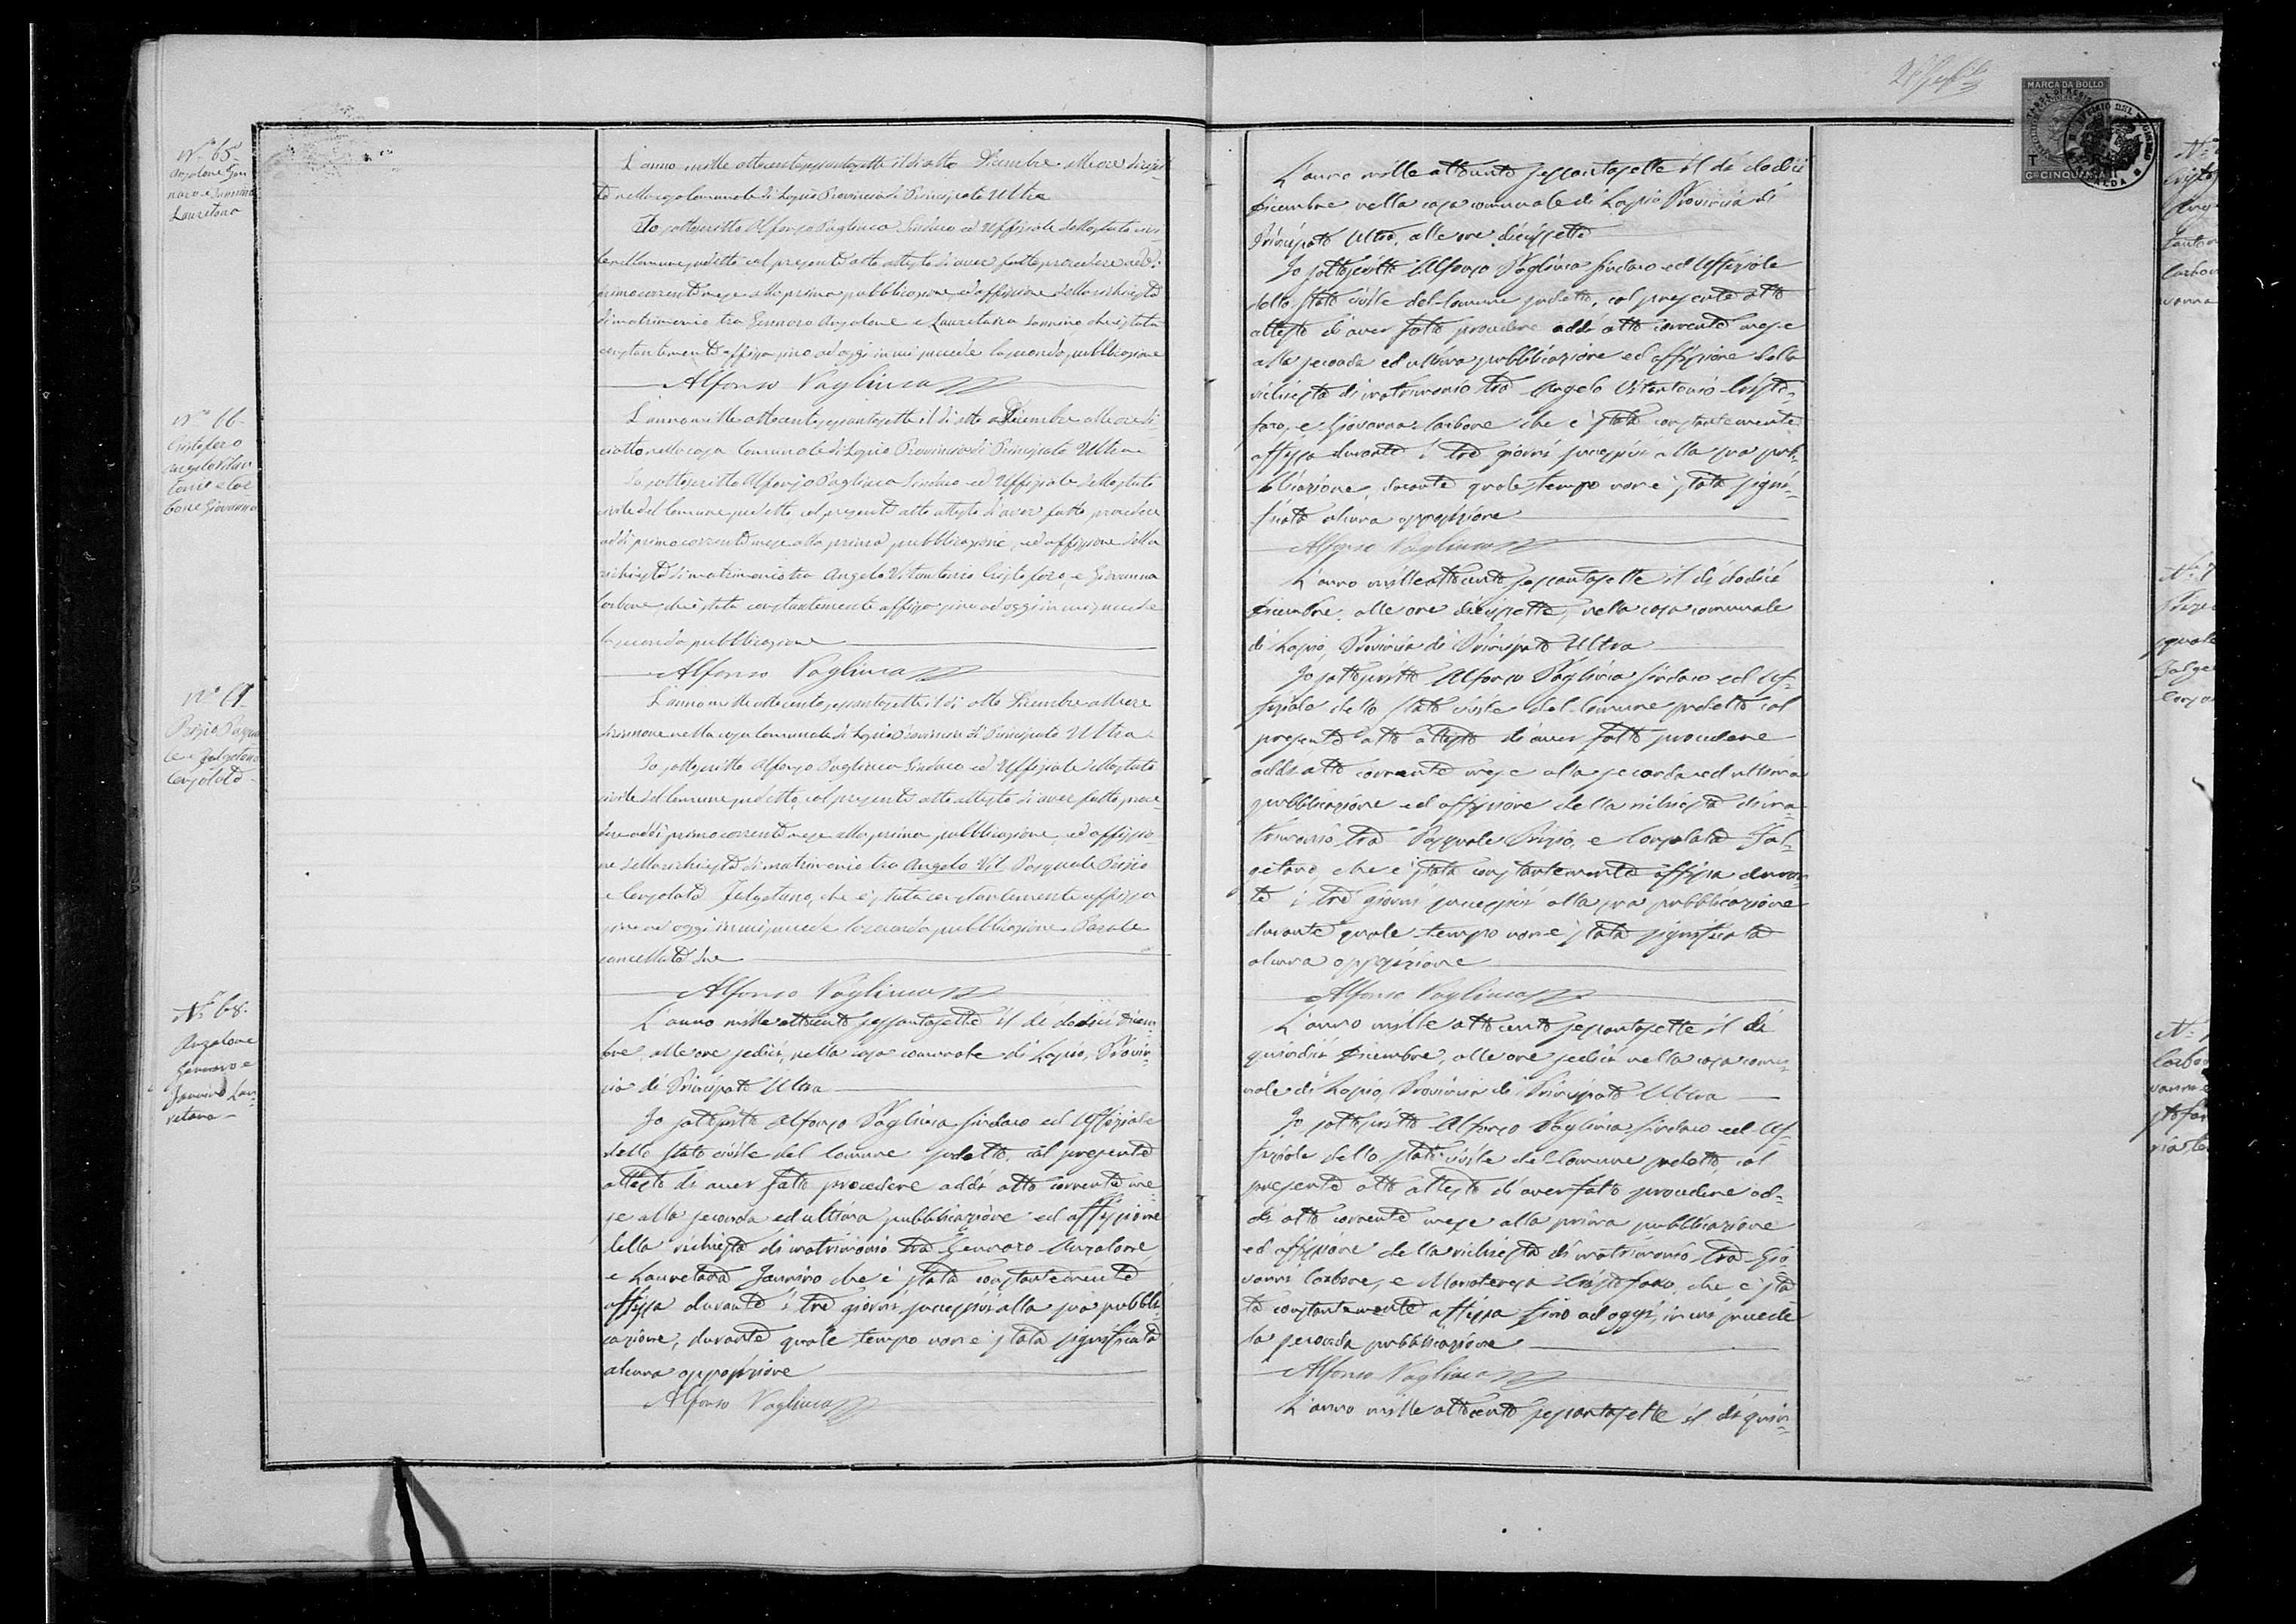 N.° 65
Anzalone Gen
naro e Iannino
Lauretana
L'anno mille ottocento sessantasette il dì otto Dicembre alle ore diciset
te nella casa Comunale di Lapio Provincia di Principato Ultra
Io sottoscritto Alfonso Vagliuca Sindaco ed Uffiziale dello stato civi-
le nel Comune sudetto col presente atto attesto di aver fatto procedere addì
primo corrente mese alla prima pubblicazione, ed affissione della richiesta
di matrimonio tra Gennaro Anzalone e Lauretana Iannino che è stata
constantemente affissa fino ad oggi in cui succede la seconda pubblicazione
Alfonso Vagliuca
N.° 66
Cristofaro
Angelo Vitan
tonio e Car
bone Giovanna
L'anno mille ottocento sessantasette il dì otto Dicembre alle ore di
ciotto nella casa Comunale di Lapio Provincia di Principato Ultra
Io sottoscritto Alfonso Vagliuca Sindaco ed Uffiziale dello stato
civile del Comune sudetto col presente atto attesto di aver fatto procedere
addì primo corrente mese alla prima pubblicazione, ed affissione della
richiesta di matrimonio tra Angelo Vitantonio Cristofaro, e Giovanna
Carbone che è stata constantemente affissa fino ad oggi in cui succede
la seconda pubblicazione
Alfonso Vagliuca
N.° 67
le e Falgetano
Consolata
L'anno mille ottocento sessantasette il dì otto Dicembre alle ore
diciannove nella casa Comunale di Lapio Provincia di Principato Ultra
Io sottoscritto Alfonso Vagliuca Sindaco ed Uffiziale dello stato
civile del Comune sudetto, col presente atto attesto di aver fatto proce-
dere addì primo corrente mese alla prima pubblicazione, ed affissio-
ne della richiesta di matrimonio tra Angelo Vit Pasquale Prizio
e Consolata Falgetano, che è stata constantemente affissa
fino ad oggi in cui succede la seconda pubblicazione. Parole
cancellate due
Alfonso Vagliuca
N.° 68.
Anzalone
Gennaro e
Iannino Lau-
retana
L'anno mille ottocento sessantasette il dì dodici Dicem-
bre, alle ore sedici, nella casa comunale di Lapio, Provin-
cia di Principato Ultra
Io sottoscritto Alfonso Vagliuca Sindaco ed Uffiziale
dello stato civile del Comune sudetto, col presente
attesto di aver fatto procedere addì otto corrente me-
se alla seconda ed ultima pubblicazione ed affissione
della richiesta di matrimonio tra Gennaro Anzalone
e Lauretana Iannino che è stata constantemente
affissa durante i tre giorni successivi alla sua pubbli-
cazione, durante quale tempo non è stata significata
alcuna opposizione
Alfonso Vagliuca
MARCA DA BOLLO
T
CINQUANTA
L'anno mille ottocento sessantasette il dì dodici
Dicembre nella casa comunale di Lapio Provincia di
Principato Ultra, alle ore diciassette
Io sottoscritto Alfonso Vagliuca Sindaco ed Uffiziale
dello stato civile del Comune sudetto, col presente atto
attesto di aver fatto procedere addì otto corrente mese
alla seconda ed ultima pubblicazione ed affissione della
richiesta di matrimonio tra Angelo Vitantonio Cristo-
faro, e Giovanna Carbone che è stata constantemente
affissa durante i tre giorni successivi alla sua pub-
blicazione, durante quale tempo non è stata signi-
ficata alcuna opposizione
Alfonso Vagliuca
L'anno mille ottocento sessantasette il dì dodici
Dicembre, alle ore diciassette, nella casa comunale
di Lapio, Provincia di Principato Ultra
Io sottoscritto Alfonso Vagliuca Sindaco ed Uf-
fiziale dello stato civile del Comune sudetto col
presente atto attesto di aver fatto procedere
addì otto corrente mese alla seconda ed ultima
pubblicazione ed affissione della richiesta di ma-
trimonio tra Pasquale Prizio, e Consolata Fal-
getano, che è stata constantemente affissa duran-
te i tre giorni successivi alla sua pubblicazione
durante quale tempo non è stata significata
alcuna opposizione
Alfonso Vagliuca
L'anno mille ottocento sessantasette il dì
quindici Dicembre, alle ore sedici nella casa comu-
nale di Lapio, Provincia di Principato Ultra
Io sottoscritto Alfonso Vagliuca Sindaco ed Uf-
fiziale dello stato civile del Comune sudetto, col
presente atto attesto di aver fatto procedere ad-
dì otto corrente mese alla prima pubblicazione
ed affissione della richiesta di matrimonio tra Gio-
vanni Carbone, e Mariateresa Cristofaro, che è sta
ta constantemente affissa fino ad oggi, in cui succede
la seconda pubblicazione
Alfonso Vagliuca
L'anno mille ottocento sessantasette il dì quin-